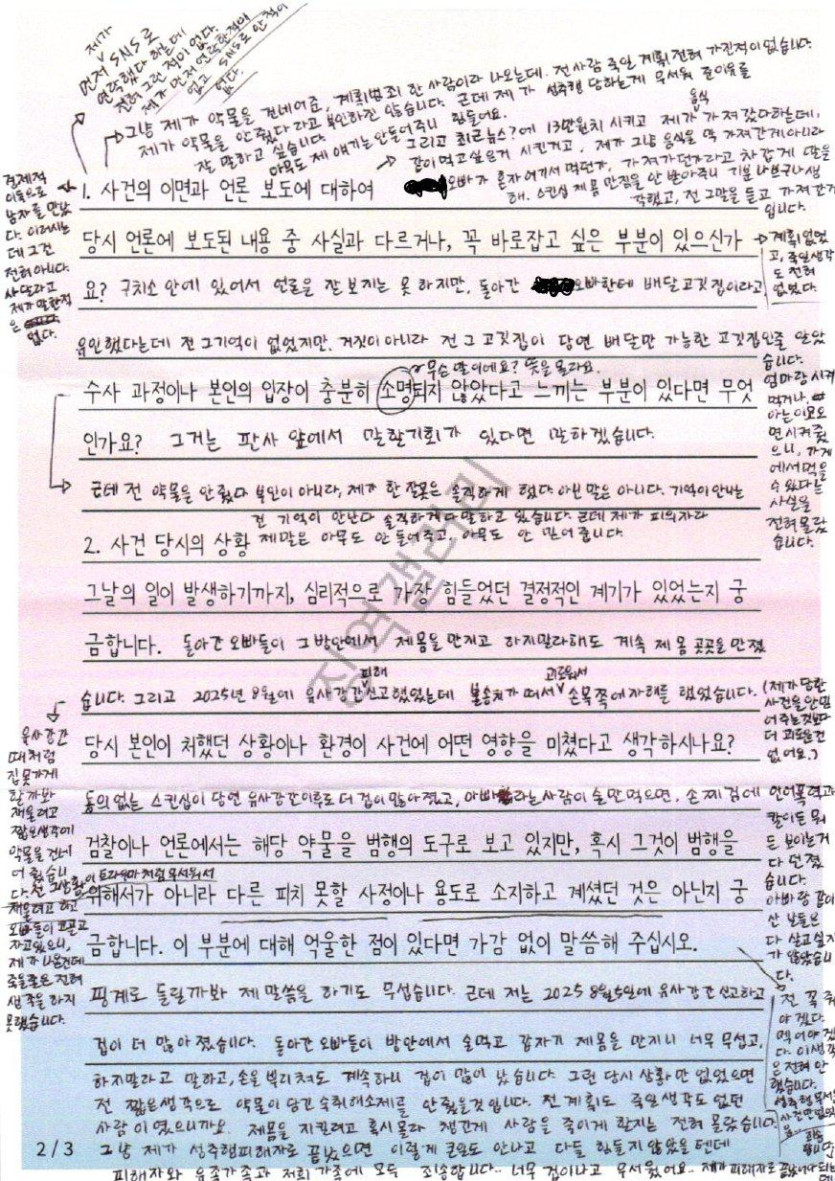 제가
먼저 SNS로
연락했다 하는데
전혀 그런 적이 없다.
제가 먼저 연락한적이
없고 SNS로 한적이
없다.
그냥 제가 약물을 건네어준, 계획범죄 한 사람이라 나오는데. 전 사람 죽일 계획 전혀 가진적이 없습니다.
제가 약물을 안줬다 라고 부인하진 않습니다. 근데 제가 성추행 당하는게 무서워 준이유를
잘 말하고 싶습니다. 아무도 제 얘기는 안들어주니 힘들어요.
그리고 최근뉴스?에 13만원치 시키고 제가 음식 가져갔다하는데,
같이먹고싶은거 시킨거고, 제가 그냥 음식을 막 가져간게아니라
오빠가 혼자 여기서 먹던가, 가져가던가라고 차갑게 말을
해. 스킨십 제몸 만짐을 안 받아주니 기분 나쁘구나 생
각했고, 전 그말을 듣고 가져간거
입니다.
경제적
이득으로
남자를 만났
다. 이러시는
데 그건
전혀 아니다.
사달라고
제가 말한적
은
없다.
1. 사건의 이면과 언론 보도에 대하여
당시 언론에 보도된 내용 중 사실과 다르거나, 꼭 바로잡고 싶은 부분이 있으신가
계획 없었
고, 죽일생각
도 전혀
없었다.
요? 구치소 안에 있어서 언론을 잘 보지는 못 하지만, 돌아간 오빠한테 배달고깃집이라고
유인했다는데 전 그기억이 없었지만, 거짓이 아니라 전 그 고깃집이 당연 배달만 가능한 고깃집인줄 알았
습니다.
엄마랑 시켜
먹거나,
아는이모오
면시켜줬
으니, 가게
에서먹을
수 있다는
사실을
전혀 몰랐
습니다.
무슨 말이에요? 뜻을 몰라요.
수사 과정이나 본인의 입장이 충분히 소명되지 않았다고 느끼는 부분이 있다면 무엇
인가요? 그거는 판사 앞에서 말할기회가 있다면 말하겠습니다.
근데 전 약물을 안줬다 부인이 아니다, 제가 한 잘못은 솔직하게 했다. 아닌 말은 아니다. 기억이안나는
건 기억이 안난다 솔직하게 다 말하고 있습니다. 근데 제가 피의자라
제말은 아무도 안 들어주고, 아무도 안 믿어 줍니다.
2. 사건 당시의 상황
그날의 일이 발생하기까지, 심리적으로 가장 힘들었던 결정적인 계기가 있었는지 궁
금합니다. 돌아간 오빠들이 그 방안에서 제몸을 만지고 하지말라해도 계속 제 몸 곳곳을 만졌
습니다. 그리고 2025년 8월에 유사강간 피해 신고했었는데 불송치가 떠서 괴로워서 손목쪽에 자해를 했었습니다.
(제가 당한
사건을 안믿
어주는것보다
더 괴로운건
없어요.)
유사강간
때처럼
집못가게
할까봐
재울려고
짧은생각에
약물을 건네
어 줬습니
다. 전 그상황이 트라우마처럼 무서워서
재울려고 하고
오빠들이 코골고
자고있으니,
제가 나온건데
죽을줄은 전혀
생각을 하지
못했습니다.
당시 본인이 처했던 상황이나 환경이 사건에 어떤 영향을 미쳤다고 생각하시나요?
동의 없는 스킨십이 당연 유사강간이후로 더 겁이 많아졌고, 아빠라는사람이 술만먹으면, 손찌검에
언어폭력과
칼이든 뭐
든 보이는거
다 던졌
습니다.
아빠랑 같이
산 날들은
다 살고싶지
가 않았습니
다.
검찰이나 언론에서는 해당 약물을 범행의 도구로 보고 있지만, 혹시 그것이 범행을
위해서가 아니라 다른 피치 못할 사정이나 용도로 소지하고 계셨던 것은 아닌지 궁
금합니다. 이 부분에 대해 억울한 점이 있다면 가감 없이 말씀해 주십시오.
핑계로 들릴까봐 제 말씀을 하기도 무섭습니다. 근데 저는 2025 8월5일에 유사강간 신고하고
겁이 더 많아 졌습니다. 돌아간 오빠들이 방안에서 술먹고 갑자기 제몸을 만지니 너무 무섭고,
하지말라고 말하고, 손을 뿌리쳐도 계속하니 겁이 많이 났습니다. 그런 당시 상황만 없었으면
전 짧은생각으로 약물이 담긴 숙취해소제를 안줬을것입니다. 전 계획도 죽일생각도 없던
사람이였으니까요. 제몸을 지킬려고 혹시몰라 챙긴게 사람을 죽이게 한지는 전혀 몰랐습니다.
그냥 제가 성추행피해자로 끝났으면 이렇게 큰일도 안나고 다들 힘들지 않았을텐데
피해자와 유족가족과 저희 가족에 모두 죄송합니다.. 너무 겁이나고 무서웠어요.. 제가 피해자로 끝났어야 되는
전 꼭 줘
야 겠다.
먹어야겠
다. 이생각
은 전혀 안
했습니다.
2/3
직역갤러리